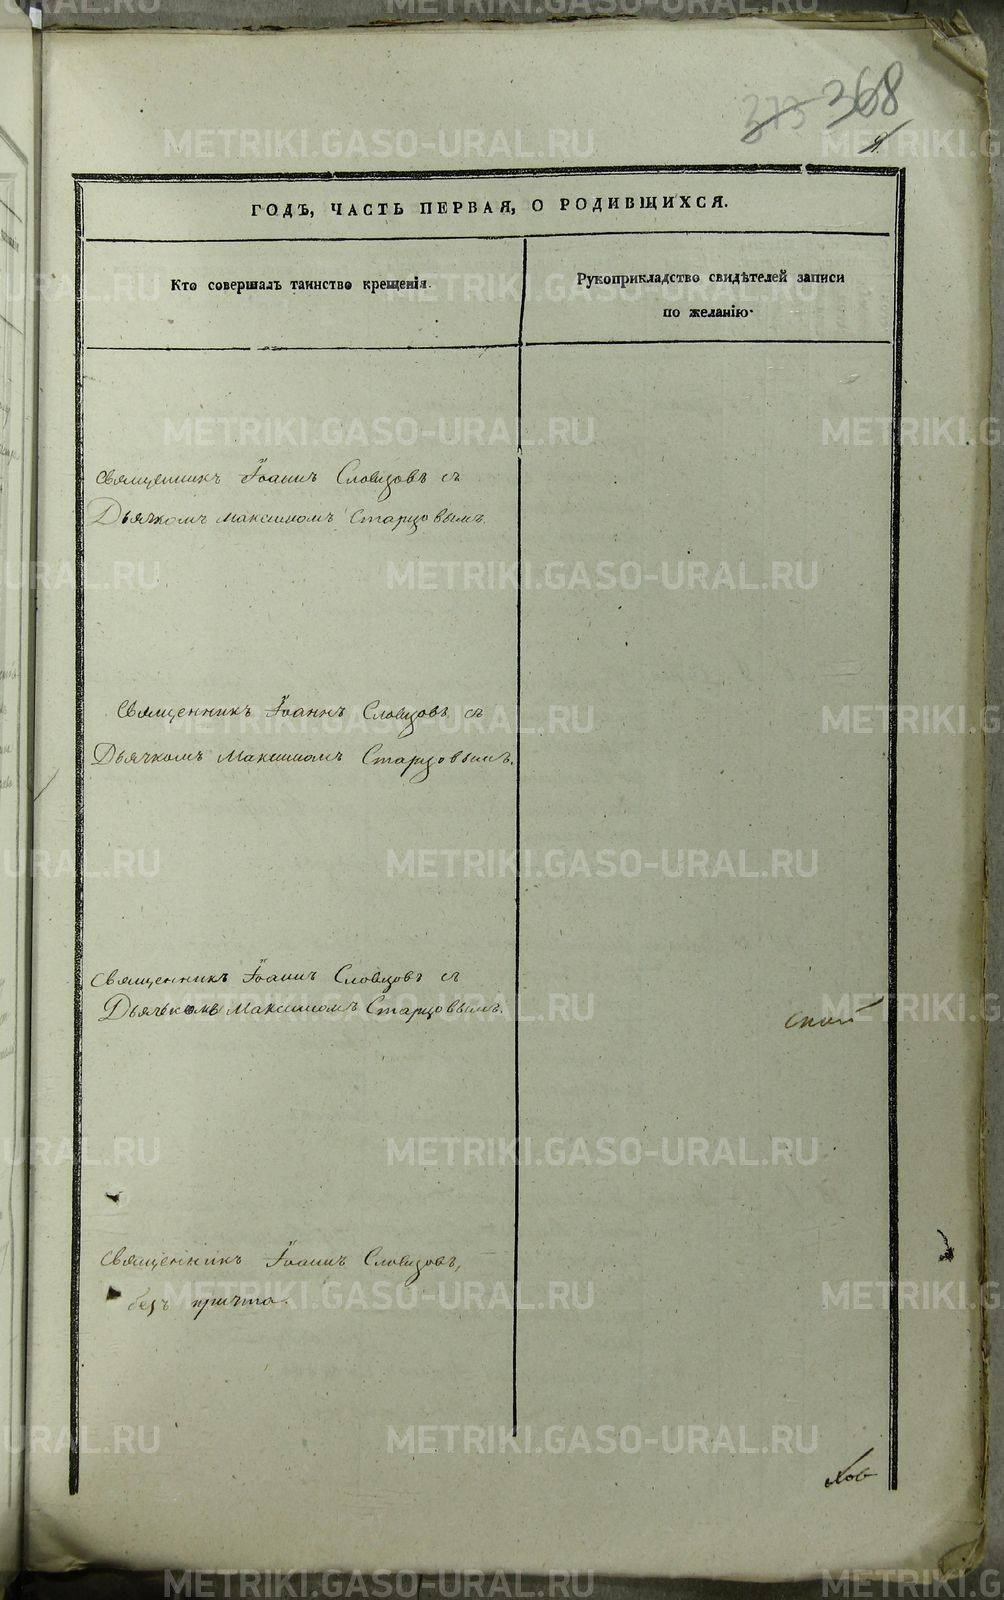 373 368
ГОДЪ, ЧАСТЬ ПЕРВАЯ, О РОДИВШИХСЯ.
Кто совершалъ таинство крещенія.
Рукоприкладство свидѣтелей записи
по желанію.
Священникъ Іоаннъ Словцовъ съ
Дьячкомъ Максимомъ Старцовымъ.
Священникъ Іоаннъ Словцовъ съ
Дьячкомъ Максимомъ Старцовымъ.
Священникъ Іоаннъ Словцовъ съ
Дьячкомъ Максимомъ Старцовымъ.
Священникъ Іоаннъ Словцовъ,
безъ причта.
ской
хов
METRIKI.GASO-URAL.RU